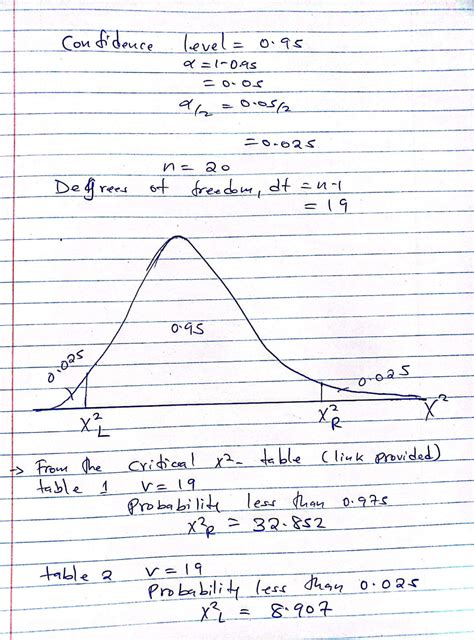 Confidence level = 0.95
α = 1-0.95
= 0.05
α/2 = 0.05/2
= 0.025
n = 20
Degrees of freedom, df = n-1
= 19
0.95
0.025
0.025
X²L
X²R
X²
→ From the critical X²- table (link provided)
table 1 V = 19
Probability less than 0.975
X²R = 32.852
table 2 V = 19
Probability less than 0.025
X²L = 8.907